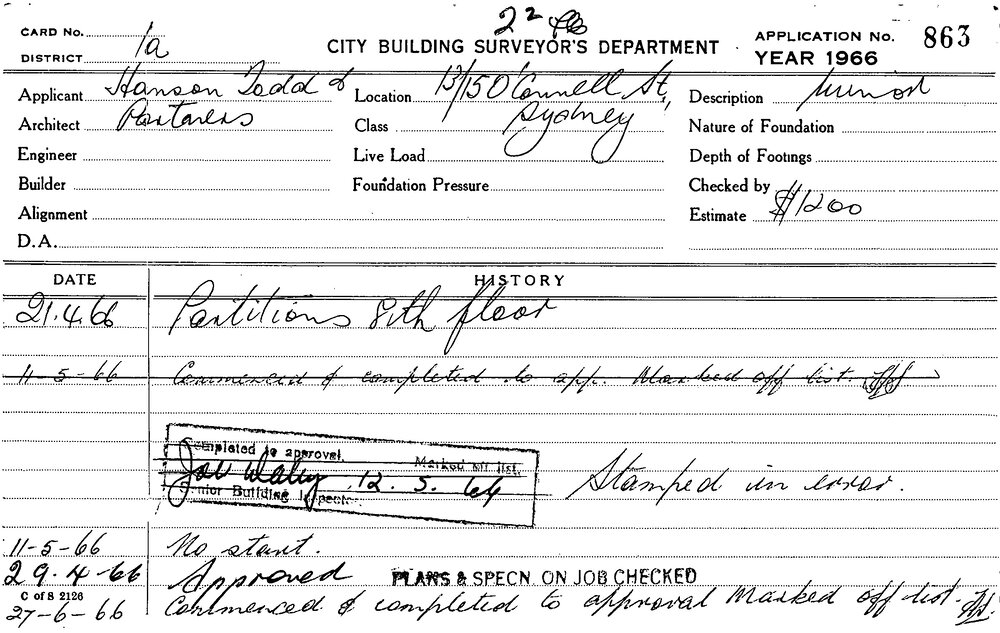 2²
CARD No.
CITY BUILDING SURVEYOR'S DEPARTMENT
APPLICATION No. 863
DISTRICT 1a
YEAR 1966
Applicant Hanson Todd &
Location 13/15 O'Connell St,
Description Minor
Architect Partners
Class Sydney
Nature of Foundation
Engineer
Live Load
Depth of Footings
Builder
Foundation Pressure
Checked by
Alignment
Estimate $1200
D.A.
DATE HISTORY
21.4.66 Partitions 8th floor
11-5-66 Commenced & completed to app. Marked off list.
Completed to approval. Marked off list.
12.5.66
Senior Building Inspector
Stamped in error.
11-5-66 No start.
29.4.66 Approved PLANS & SPECN. ON JOB CHECKED
C of S 2126
27-6-66 Commenced & completed to approval Marked off list.